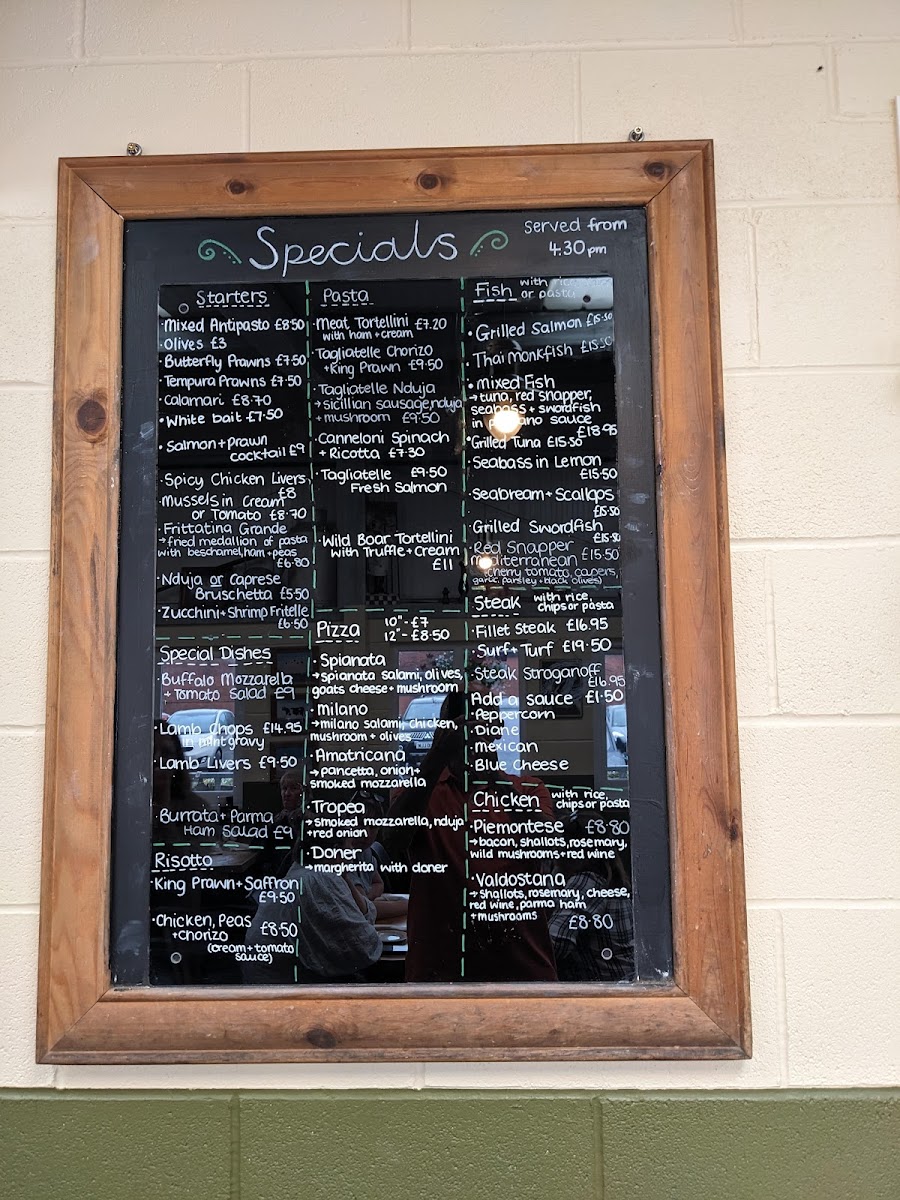 Specials
served from
4.30pm
Starters
·Mixed Antipasto £8.50
·Olives £3
·Butterfly Prawns £7.50
·Tempura Prawns £7.50
·Calamari £8.70
·White bait £7.50
·Salmon + prawn
cocktail £9
·Spicy Chicken Livers
£8
·Mussels in Cream
or Tomato £8.70
·Frittatina Grande
→fried medallion of pasta
with beschamel, ham + peas
£6.80
·Nduja or Caprese
Bruschetta £5.50
·Zucchini + Shrimp Fritelle
£6.50
Special Dishes
·Buffalo Mozzarella
+ Tomato Salad £9
·Lamb Chops £14.95
in mint gravy
·Lamb Livers £9.50
·Burrata + Parma
Ham Salad £9
Risotto
·King Prawn + Saffron
£9.50
·Chicken, Peas £8.50
+chorizo
(cream + tomato
sauce)
Pasta
·Meat Tortellini £7.20
with ham + cream
·Tagliatelle Chorizo
+King Prawn £9.50
·Tagliatelle Nduja
→sicillian sausage, nduja
+ mushroom £9.50
·Canneloni Spinach
+ Ricotta £7.30
·Tagliatelle £9.50
Fresh Salmon
·Wild Boar Tortellini
with Truffle + Cream
£11
Pizza 10"-£7
12"-£8.50
·Spianata
→Spianata salami, olives,
goats cheese + mushroom
·Milano
→milano salami, chicken,
mushroom + olives
·Amatricana
→pancetta, onion+
smoked mozzarella
·Tropea
→smoked mozzarella, nduja
+red onion
·Doner
→margherita with doner
Fish with
or pasta
·Grilled Salmon £15.50
·Thai monkfish £15.50
·mixed Fish
→tuna, red snapper,
seabass + swordfish
in sauce
£18.95
·Grilled Tuna £15.50
·Seabass in Lemon
£15.50
·Seabream + Scallops
£15.50
·Grilled Swordfish
£15.50
·Red Snapper £15.50
mediterranean
(cherry tomato, capers,
garlic, parsley + black olives)
Steak with rice,
chips or pasta
·Fillet Steak £16.95
·Surf + Turf £19.50
·Steak Stroganoff
£16.95
Add a sauce £1.50
·Peppercorn
·Diane
·mexican
·Blue Cheese
Chicken with rice,
chips or pasta
·Piemontese £8.80
→bacon, shallots, rosemary,
wild mushrooms + red wine
·Valdostana
→shallots, rosemary, cheese,
red wine, parma ham
+mushrooms
£8.80